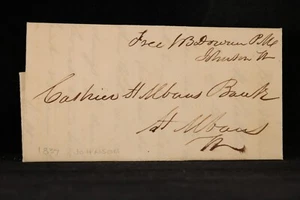 Free J B Downer P.M.
Johnson Vt
Cashier St Albans Bank
St Albans
Vt